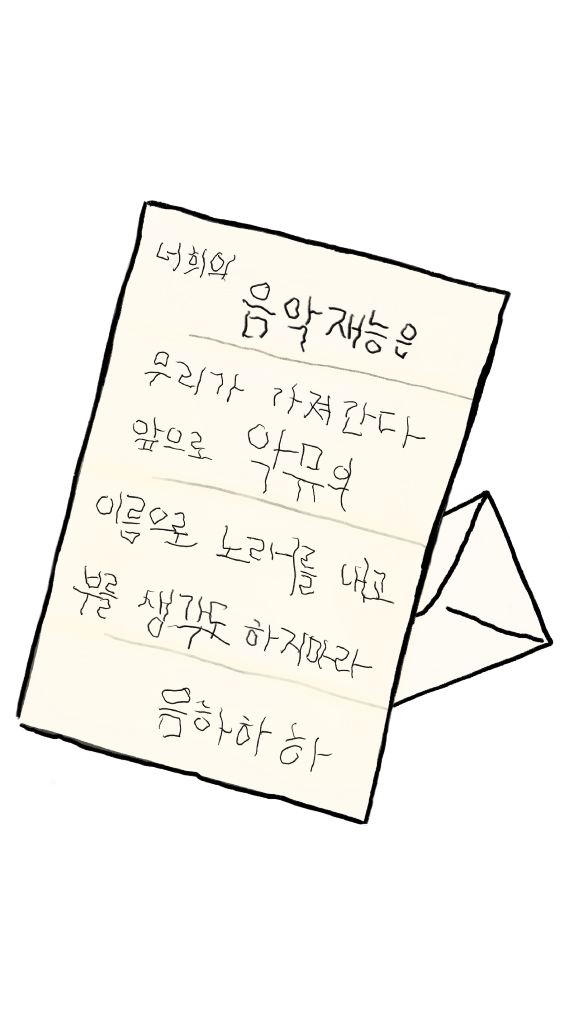 너희의
음악재능은
우리가 가져간다
앞으로 악뮤의
이름으로 노래를 내고
부를 생각도 하지마라
음하하하